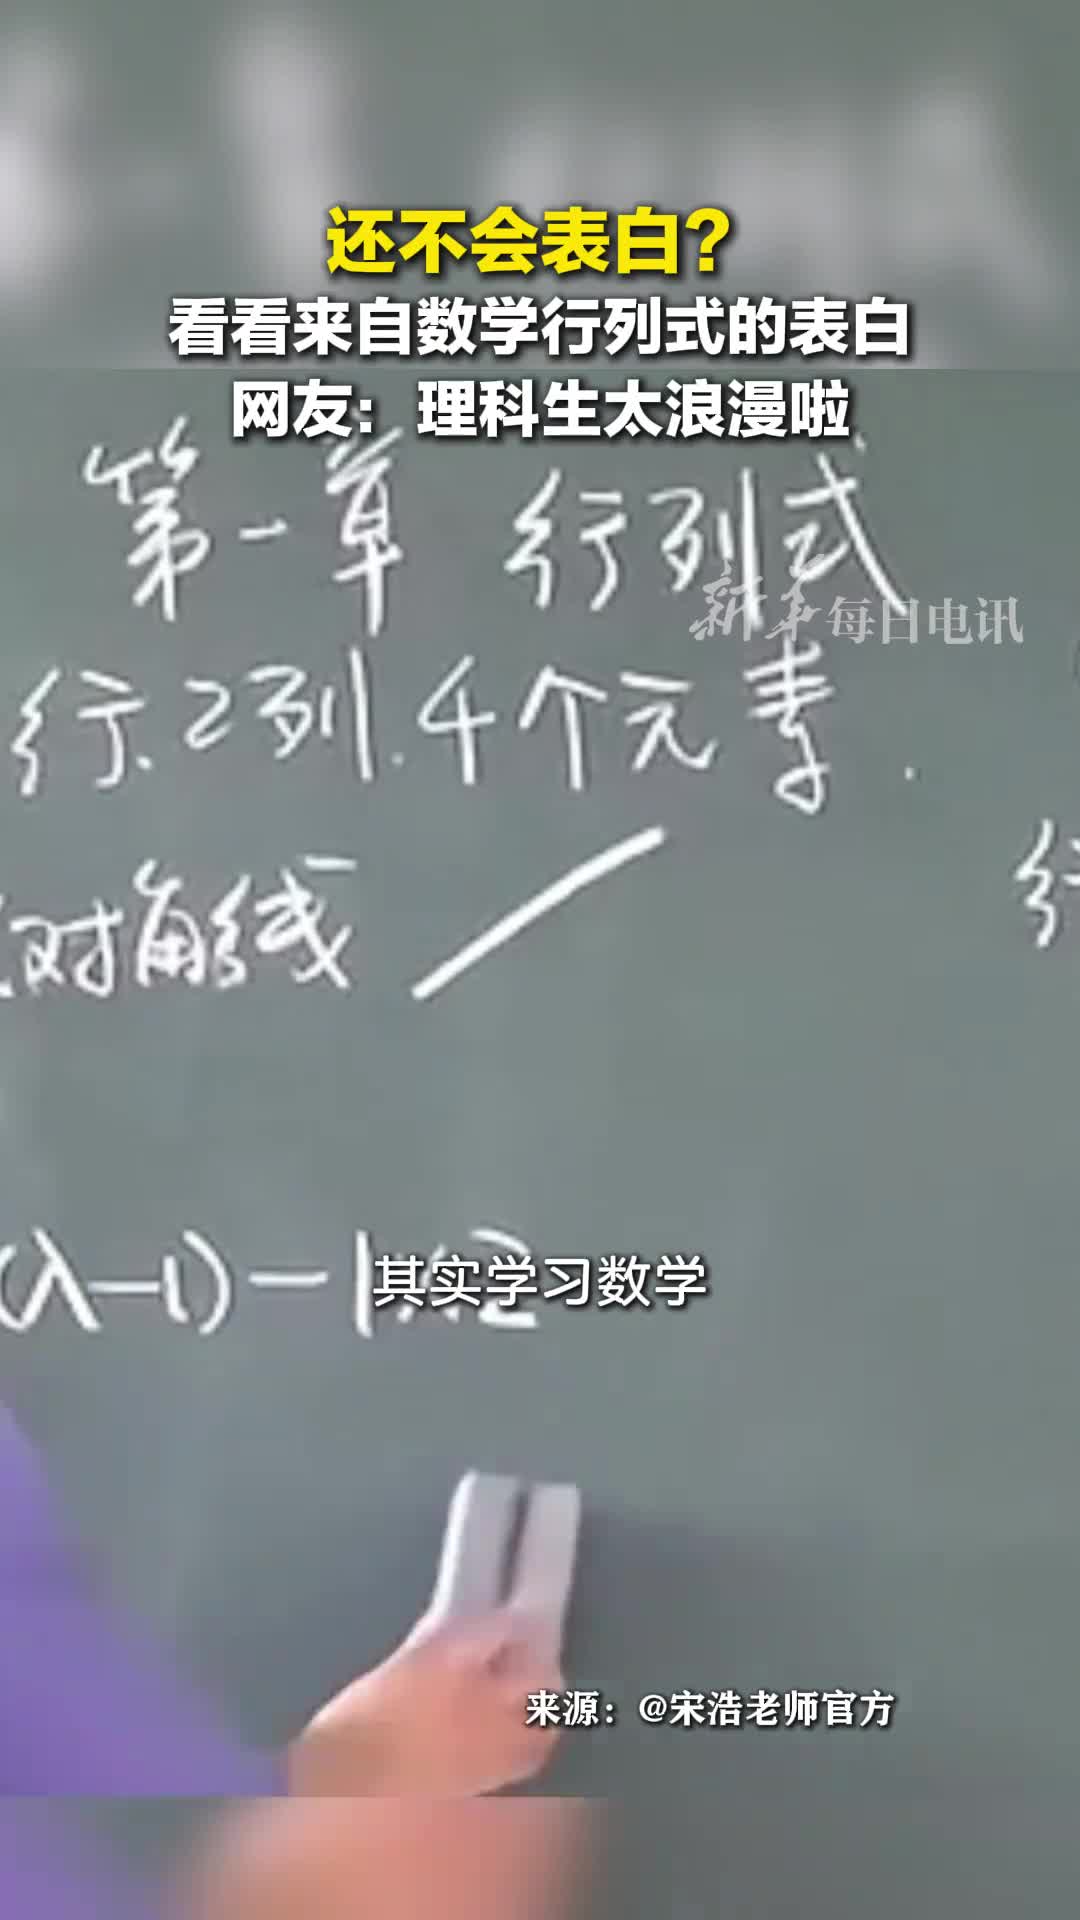 还不会表白？
看看来自数学行列式的表白
网友：理科生太浪漫啦
第一章 行列式
新华每日电讯
行、2列、4个元素.
对角线
行
(λ-1)-1×2
其实学习数学
来源：@宋浩老师官方